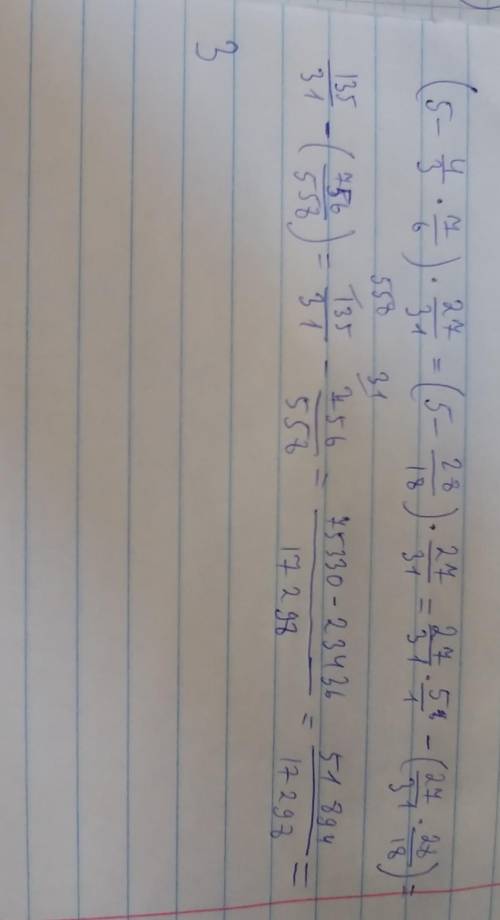 (5 - 4/3 · 7/6) · 27/31 = (5 - 28/18) · 27/31 = 27/31 · 5/1 - (27/31 · 28/18) =
558 31
135/31 - (756/558) = 135/31 - 756/558 = (75330 - 23436)/17298 = 51894/17298 =
3